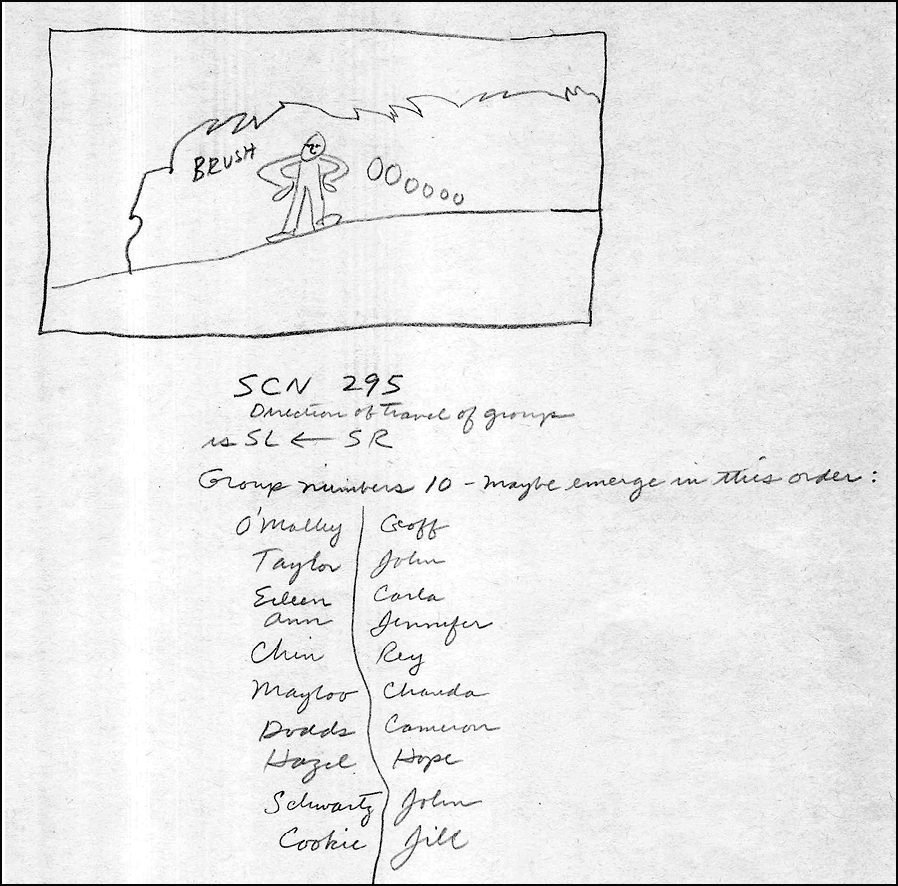 BRUSH
SCN 295
Direction of travel of group
is SL ← SR
Group numbers 10 - maybe emerge in this order:
O'Malley | Geoff
Taylor | John
Eileen | Carla
Ann | Jennifer
Chin | Rey
Mayloo | Chanda
Dodds | Cameron
Hazel | Hope
Schwartz | John
Cookie | Jill